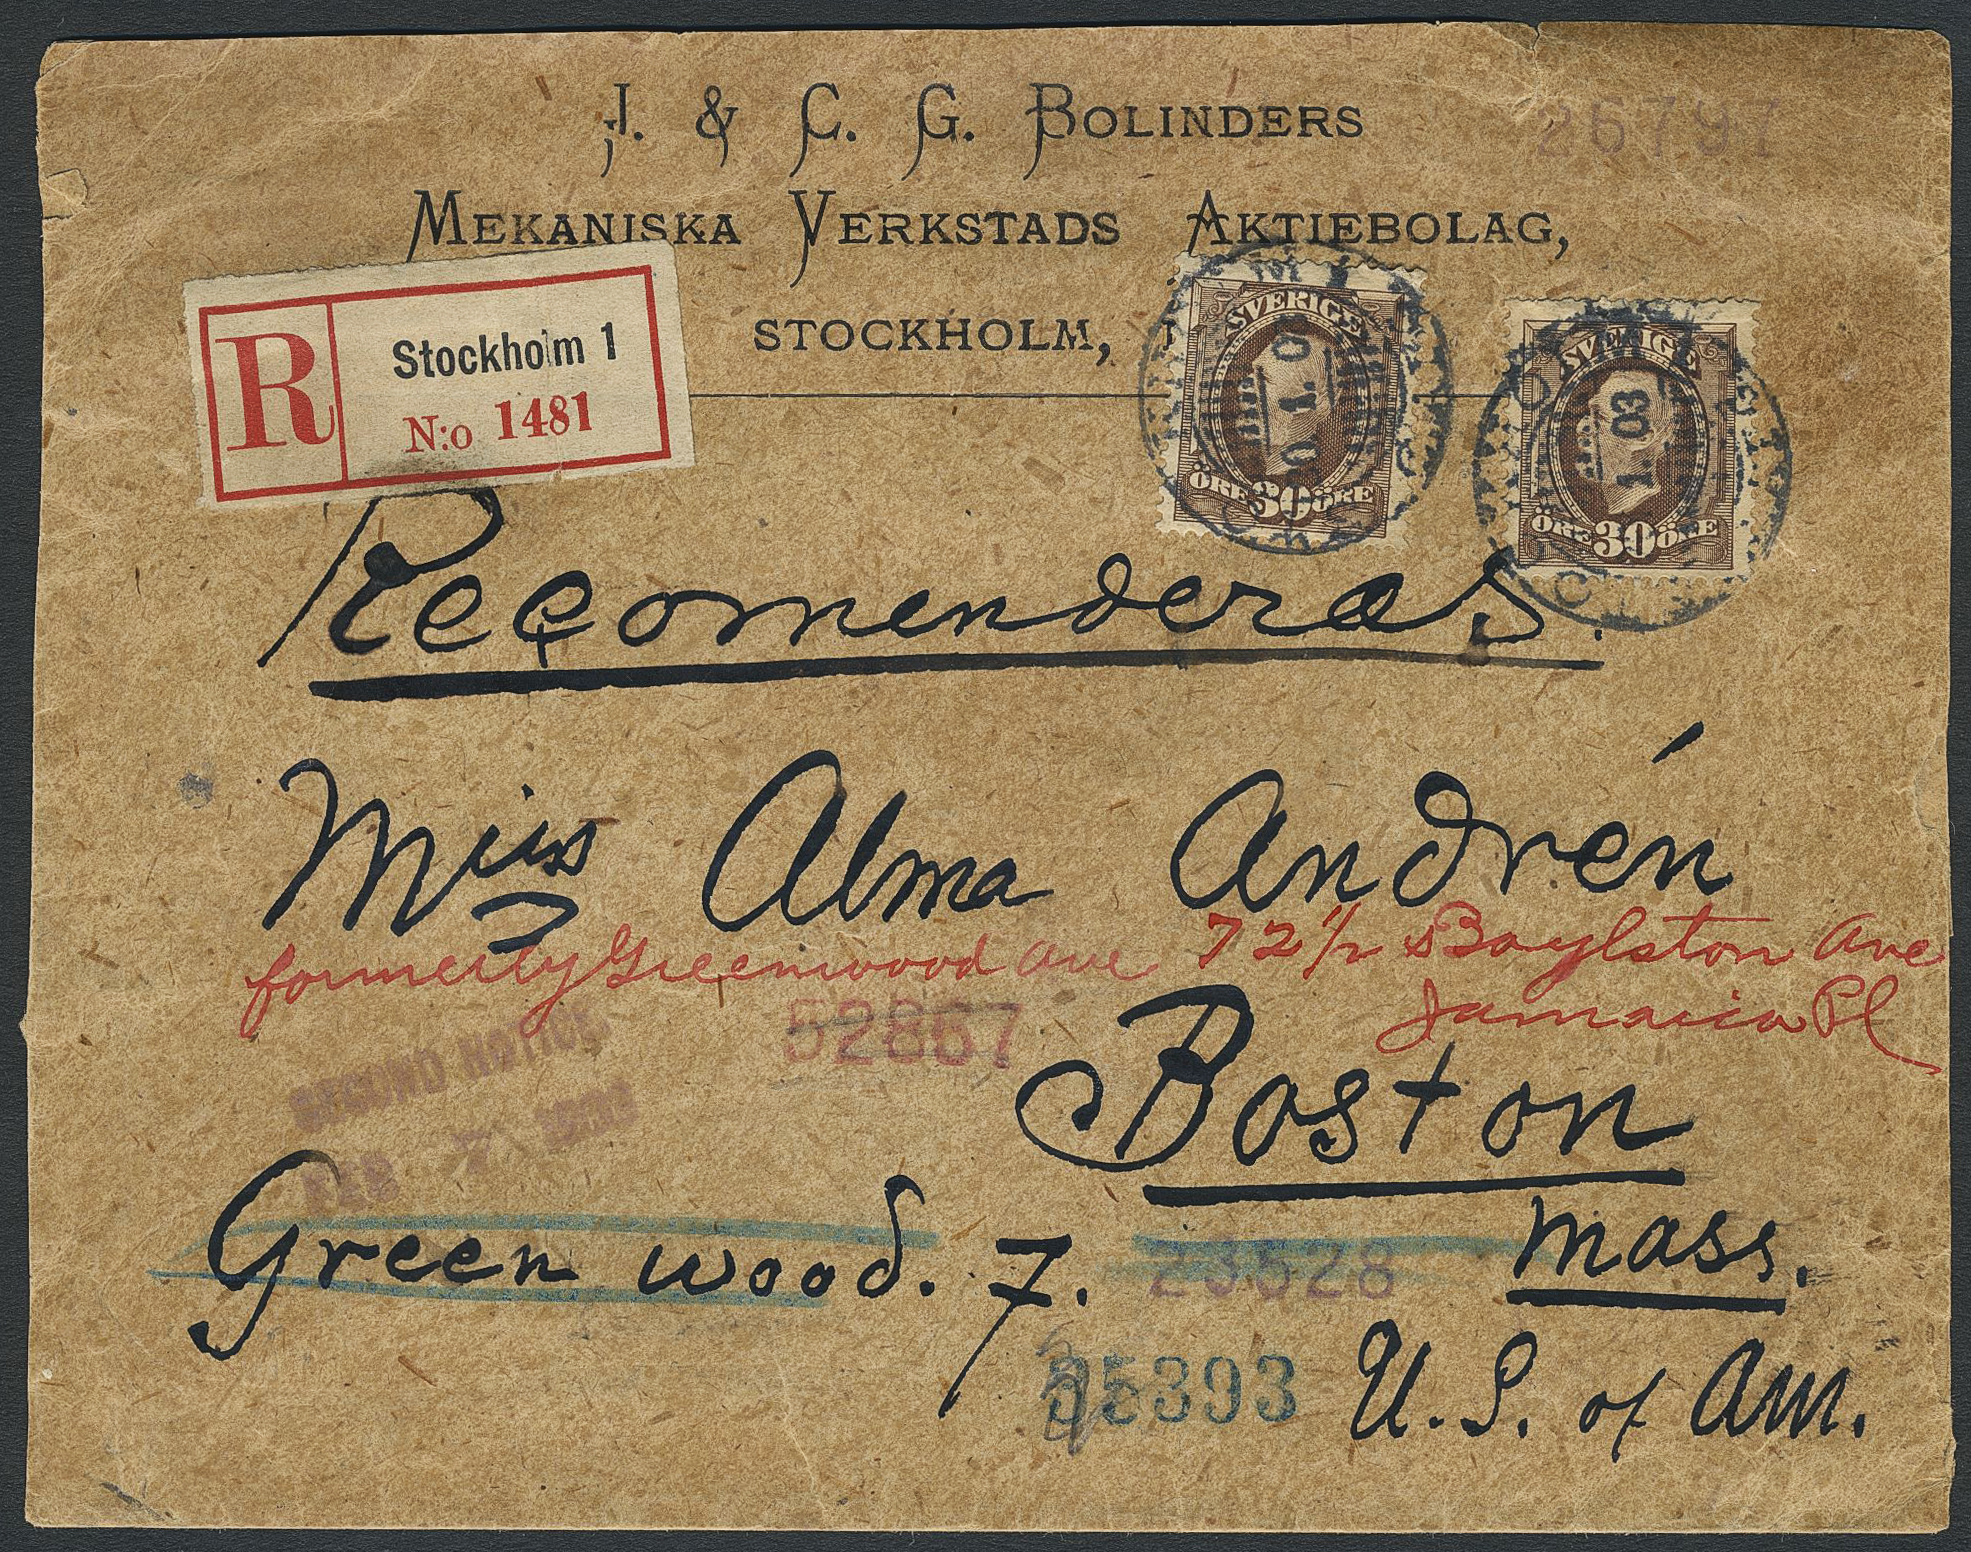 J. & C. G. BOLINDERS
26797
MEKANISKA VERKSTADS AKTIEBOLAG,
STOCKHOLM,
R
Stockholm 1
N:o 1481
SVERIGE
ÖRE 30 ÖRE
SVERIGE
1 03
ÖRE 30 ÖRE
Recomenderas.
Miss Alma Andrén
formerly Greenwood Ave 72 1/2 Boylston Ave
Jamaica Pl
52867
SECOND NOTICE
FEB 7
Boston
Green wood. 7.
23528
Mass.
35393
U. S. of Am.